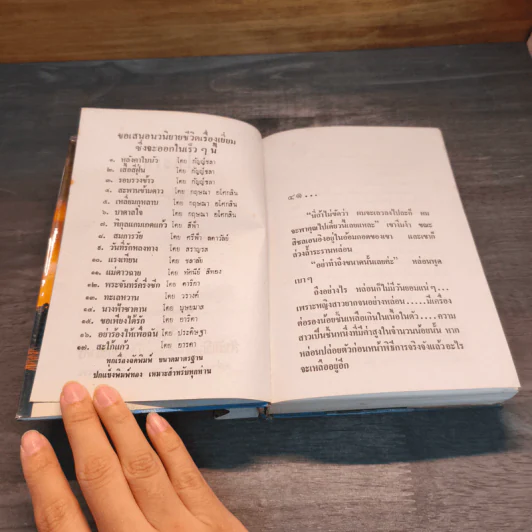 ขอเสนอนวนิยายชีวิตเรื่องเยี่ยม
ซึ่งจะออกในเร็ว ๆ นี้
๑. หลังคาใบบัว โดย กัญญ์ชลา
๒. เสื้อสีฝุ่น โดย กัญญ์ชลา
๓. รอบรวงข้าว โดย กัญญ์ชลา
๔. สะพานข้ามดาว โดย กฤษณา อโศกสิน
๕. เหลี่ยมกุหลาบ โดย กฤษณา อโศกสิน
๖. บาดาลใจ โดย กฤษณา อโศกสิน
๗. พิกุลแกมเกดแก้ว โดย สีฟ้า
๘. สมภารวัด โดย ศรีฟ้า ลดาวัลย์
๙. วันที่รักหลงทาง โดย
๑๐. แรงเทียน โดย ชลาลัย
๑๑. แม่ดาวฉาย โดย ทัศนีย์ สีทอง
๑๒. พระจันทร์ครึ่งซีก โดย ดาริกา
๑๓. ทะเลหวาน โดย วรางค์
๑๔. นางฟ้าซาตาน โดย บุษยมาส
๑๕. ขอเพียงได้รัก โดย
๑๖. อย่าร้องไห้เพื่อฉัน โดย ประดิษฐา
๑๗. สะใภ้แก้ว โดย
ทุกเรื่องจัดพิมพ์ ขนาดมาตรฐาน
ปกแข็งพิมพ์ทอง เหมาะสำหรับทุกท่าน
๔๑...
จะพาคุณไปเดี๋ยวนี้เลยแหละ" ขณะ
สีชลเอนอิงอยู่ในอ้อมกอดของเขา และเขาก็
ล่วงล้ำระรานหล่อน
"อย่าทำถึงขนาดนั้นเลยค่ะ" หล่อนพูด
เบาๆ
ถึงอย่างไร หล่อนก็ไม่มีวันยอมแน่ๆ...
เพราะหญิงสาวยากจนอย่างหล่อน...มีเครื่อง
ต่อรองน้อยชิ้นเหลือเกินในเนื้อในตัว...ความ
สาวเป็นชิ้นหนึ่งที่มีค่าสูงในจำนวนน้อยนั้น หาก
หล่อนปล่อยตัวก่อนหน้าพิธีการจริงจังแล้วอะไร
จะเหลืออยู่อีก